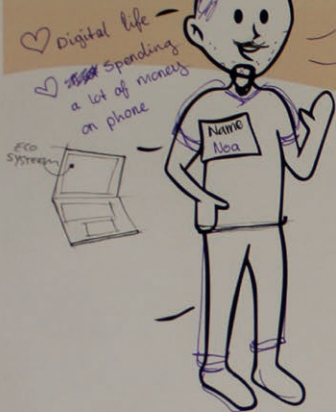 Digital life
Spending
a lot of money
on phone
ECO
SYSTEEM
Name
Noa